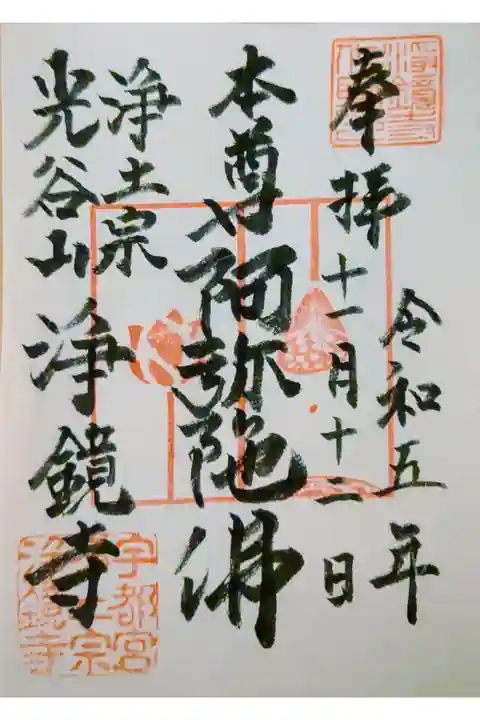 奉拝
令和五年
十一月十二日
本尊阿弥陀佛
浄土宗
光谷山
浄鏡寺
宇都宮
浄土宗
浄鏡寺